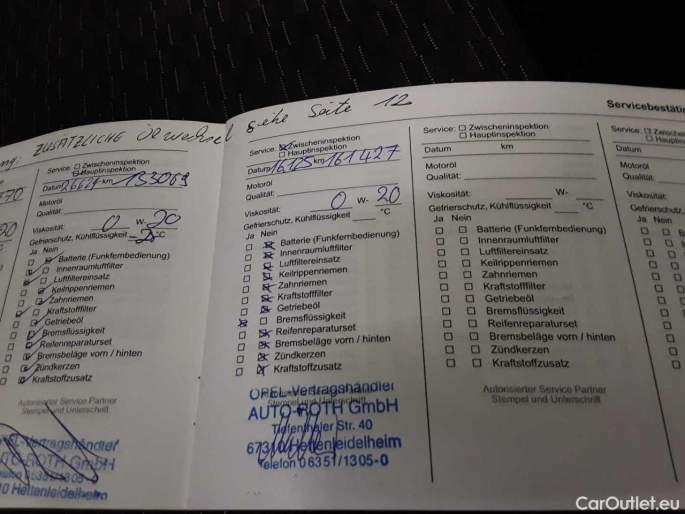 ZUSÄTZLICHE Ölwechsel siehe Seite 12
Servicebestäti
Service: Zwischeninspektion
Hauptinspektion
Datum km 133069
Motoröl
Qualität:
Viskosität: 0 W- 20
Gefrierschutz, Kühlflüssigkeit °C
Ja Nein
Batterie (Funkfernbedienung)
Innenraumluftfilter
Luftfiltereinsatz
Keilrippenriemen
Zahnriemen
Kraftstofffilter
Getriebeöl
Bremsflüssigkeit
Reifenreparaturset
Bremsbeläge vorn / hinten
Zündkerzen
Kraftstoffzusatz
Autorisierter Service Partner
Stempel und Unterschrift
OPEL-Vertragshändler
AUTO-ROTH GmbH
Telefon 06351/1305-0
Hettenleidelheim
Service: Zwischeninspektion
Hauptinspektion
Datum km 161427
Motoröl
Qualität:
Viskosität: 0 W- 20
Gefrierschutz, Kühlflüssigkeit °C
Ja Nein
Batterie (Funkfernbedienung)
Innenraumluftfilter
Luftfiltereinsatz
Keilrippenriemen
Zahnriemen
Kraftstofffilter
Getriebeöl
Bremsflüssigkeit
Reifenreparaturset
Bremsbeläge vorn / hinten
Zündkerzen
Kraftstoffzusatz
OPEL-Vertragshändler
Stempel und Unterschrift
AUTO-ROTH GmbH
Tiefenthaler Str. 40
67310 Hettenleidelheim
Telefon 06351/1305-0
Service: Zwischeninspektion
Hauptinspektion
Datum km
Motoröl
Qualität:
Viskosität: W-
Gefrierschutz, Kühlflüssigkeit °C
Ja Nein
Batterie (Funkfernbedienung)
Innenraumluftfilter
Luftfiltereinsatz
Keilrippenriemen
Zahnriemen
Kraftstofffilter
Getriebeöl
Bremsflüssigkeit
Reifenreparaturset
Bremsbeläge vorn / hinten
Zündkerzen
Kraftstoffzusatz
Autorisierter Service Partner
Stempel und Unterschrift
Service:
Datum
Motoröl
Qualität:
Viskosität:
Gefrierschutz, Kü
Ja Nein
CarOutlet.eu